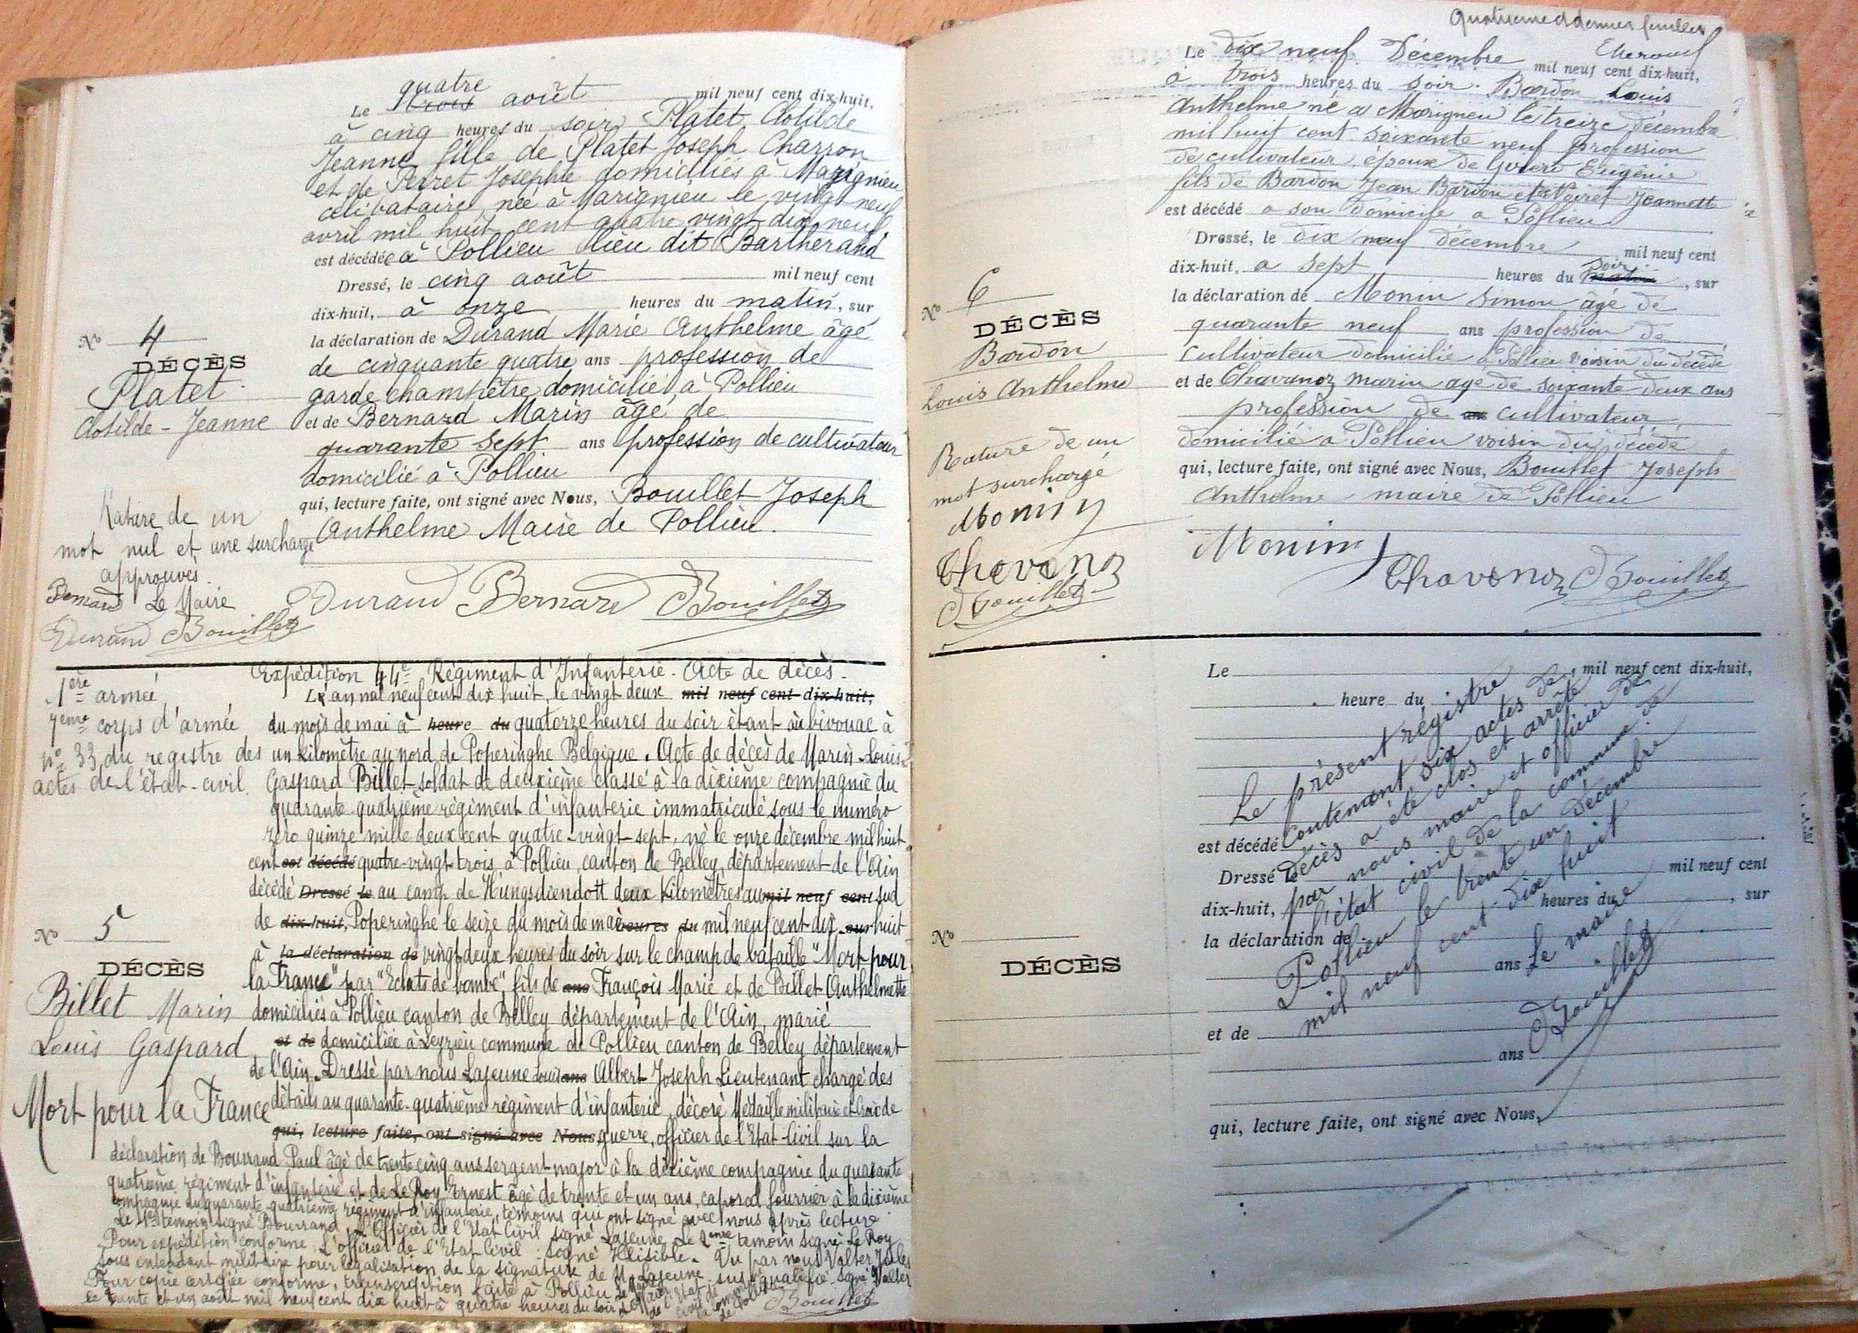 quatre
Le trois août mil neuf cent dix-huit,
à cinq heures du soir Platet Clotilde
Jeanne fille de Platet Joseph Charron
et de Perret Josephte domiciliés à Marignieu
célibataire née à Marignieu le vingt neuf
avril mil huit cent quatre vingt dix neuf
est décédée à Pollieu lieu dit Bartherand
Dressé, le cinq août mil neuf cent
dix-huit, à onze heures du matin, sur
la déclaration de Durand Marie Anthelme âgé
de cinquante quatre ans profession de
garde champêtre domicilié à Pollieu
et de Bernard Marin âgé de
quarante sept ans profession de cultivateur
domicilié à Pollieu
qui, lecture faite, ont signé avec Nous, Bouillet Joseph
Anthelme Maire de Pollieu.
Durand Bernard JBouillet
No 4
DÉCÈS
Platet
Clotilde - Jeanne
Rature de un
mot nul et une surcharge
approuvés.
Bernard Le Maire
Durand JBouillet
Expédition 44e Régiment d'Infanterie. Acte de décès.
L'an mil neuf cent dix huit, le vingt deux mil neuf cent dix-huit,
du mois de mai à heure du quatorze heures du soir étant au bivouac à
un kilomètre au nord de Poperinghe Belgique. Acte de décès de Marin-Louis-
Gaspard Billet soldat de deuxième classe à la dixième compagnie du
quarante quatrième régiment d'infanterie immatriculé sous le numéro
zéro quinze mille deux cent quatre-vingt-sept, né le onze décembre mil huit
cent est décédé quatre-vingt trois à Pollieu, canton de Belley, département de l'Ain
décédé Dressé le au camp de deux kilomètres au mil neuf cent sud
de dix-huit, Poperinghe le seize du mois de mai heures du mil neuf cent dix sur huit
à la déclaration de vingt deux heures du soir sur le champ de bataille "Mort pour
la France" par "Eclats de bombe" fils de ans François Marie et de Billet Anthelmette
domiciliés à Pollieu canton de Belley département de l'Ain, marié
et de domiciliée à Leyzieu commune de Pollieu canton de Belley département
de l'Ain. Dressé par nous Lajeune Louis ans Albert Joseph Lieutenant chargé des
détails au quarante-quatrième régiment d'infanterie, décoré Médaille militaire et Croix de
qui, lecture faite, ont signé avec Nous, guerre, officier de l'Etat-Civil sur la
déclaration de Bourrand Paul âgé de trente cinq ans sergent major à la dixième compagnie du quarante
quatrième régiment d'infanterie et de Le Roy Ernest âgé de trente et un ans, caporal fourrier à la dixième
compagnie du quarante quatrième régiment d'infanterie, témoins qui ont signé avec nous après lecture.
Le 1er témoin signé Bourrand L'Officier de l'Etat Civil signé Lajeune Le 2ème témoin signé Le Roy
Pour expédition conforme. L'officier de l'Etat Civil signé Illisible. Vu par nous Valter Jules
sous intendant militaire pour légalisation de la signature de M. Lajeune sus qualifié signé Valter
Pour copie certifiée conforme, transcription faite à Pollieu
le trente et un août mil neuf cent dix huit à quatre heures du soir
de l'état civil de la commune de Pollieu JBouillet
1ère armée
7ème corps d'armée
no 33 du registre des
actes de l'état-civil.
No 5
DÉCÈS
Billet Marin
Louis Gaspard
Mort pour la France
Quatrième et dernier feuillet
Le dix neuf Décembre mil neuf cent dix-huit,
à trois heures du soir. Bardon Louis
Anthelme né à Marignieu le treize décembre
mil huit cent soixante neuf profession
de cultivateur époux de Eugénie
fils de Bardon Jean Bardon et Jeannette
est décédé a son domicile a Pollieu
Dressé, le dix neuf décembre mil neuf cent
dix-huit, a sept heures du matin soir, sur
la déclaration de Monin Simon âgé de
quarante neuf ans profession de
cultivateur domicilié à Pollieu voisin du décédé
et de Chavanoz Marin agé de soixante deux ans
profession de cultivateur
domicilié a Pollieu voisin du décédé
qui, lecture faite, ont signé avec Nous, Bouillet Joseph
Anthelme maire de Pollieu
Monin Chavanoz JBouillet
No 6
DÉCÈS
Bardon
Louis Anthelme
Rature de un
mot surchargé
Monin
Chavanoz
JBouillet
Le mil neuf cent dix-huit,
heure du
est décédé
Dressé le mil neuf cent
dix-huit, heures du , sur
la déclaration de
ans
et de
ans
qui, lecture faite, ont signé avec Nous,
Le présent régistre
contenant six actes de
décès a été clos et arrêté
par nous maire et officier de
l'état civil de la commune de
Pollieu le trente un décembre
mil neuf cent dix huit
Le maire
JBouillet
No
DÉCÈS